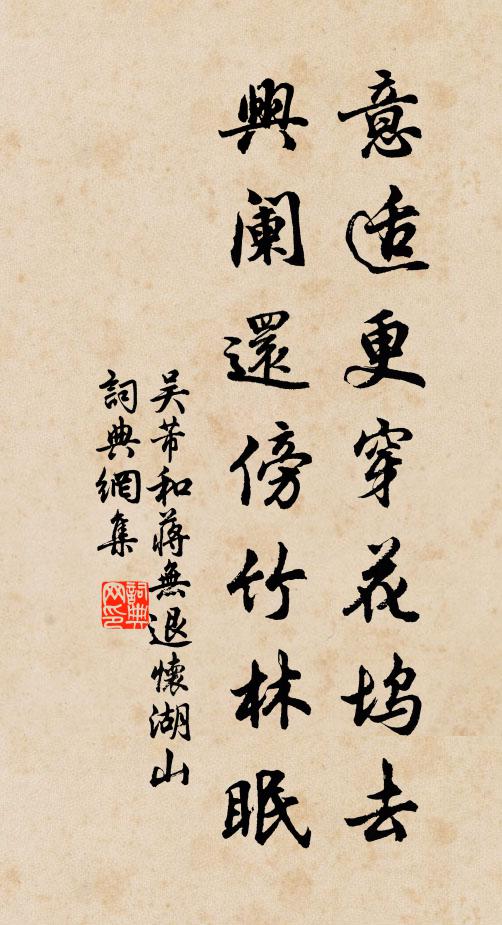 意适更穿花坞去
興阑還傍竹林眠
吴芾和蔣無退懷湖山
詞典網集
詞典网印